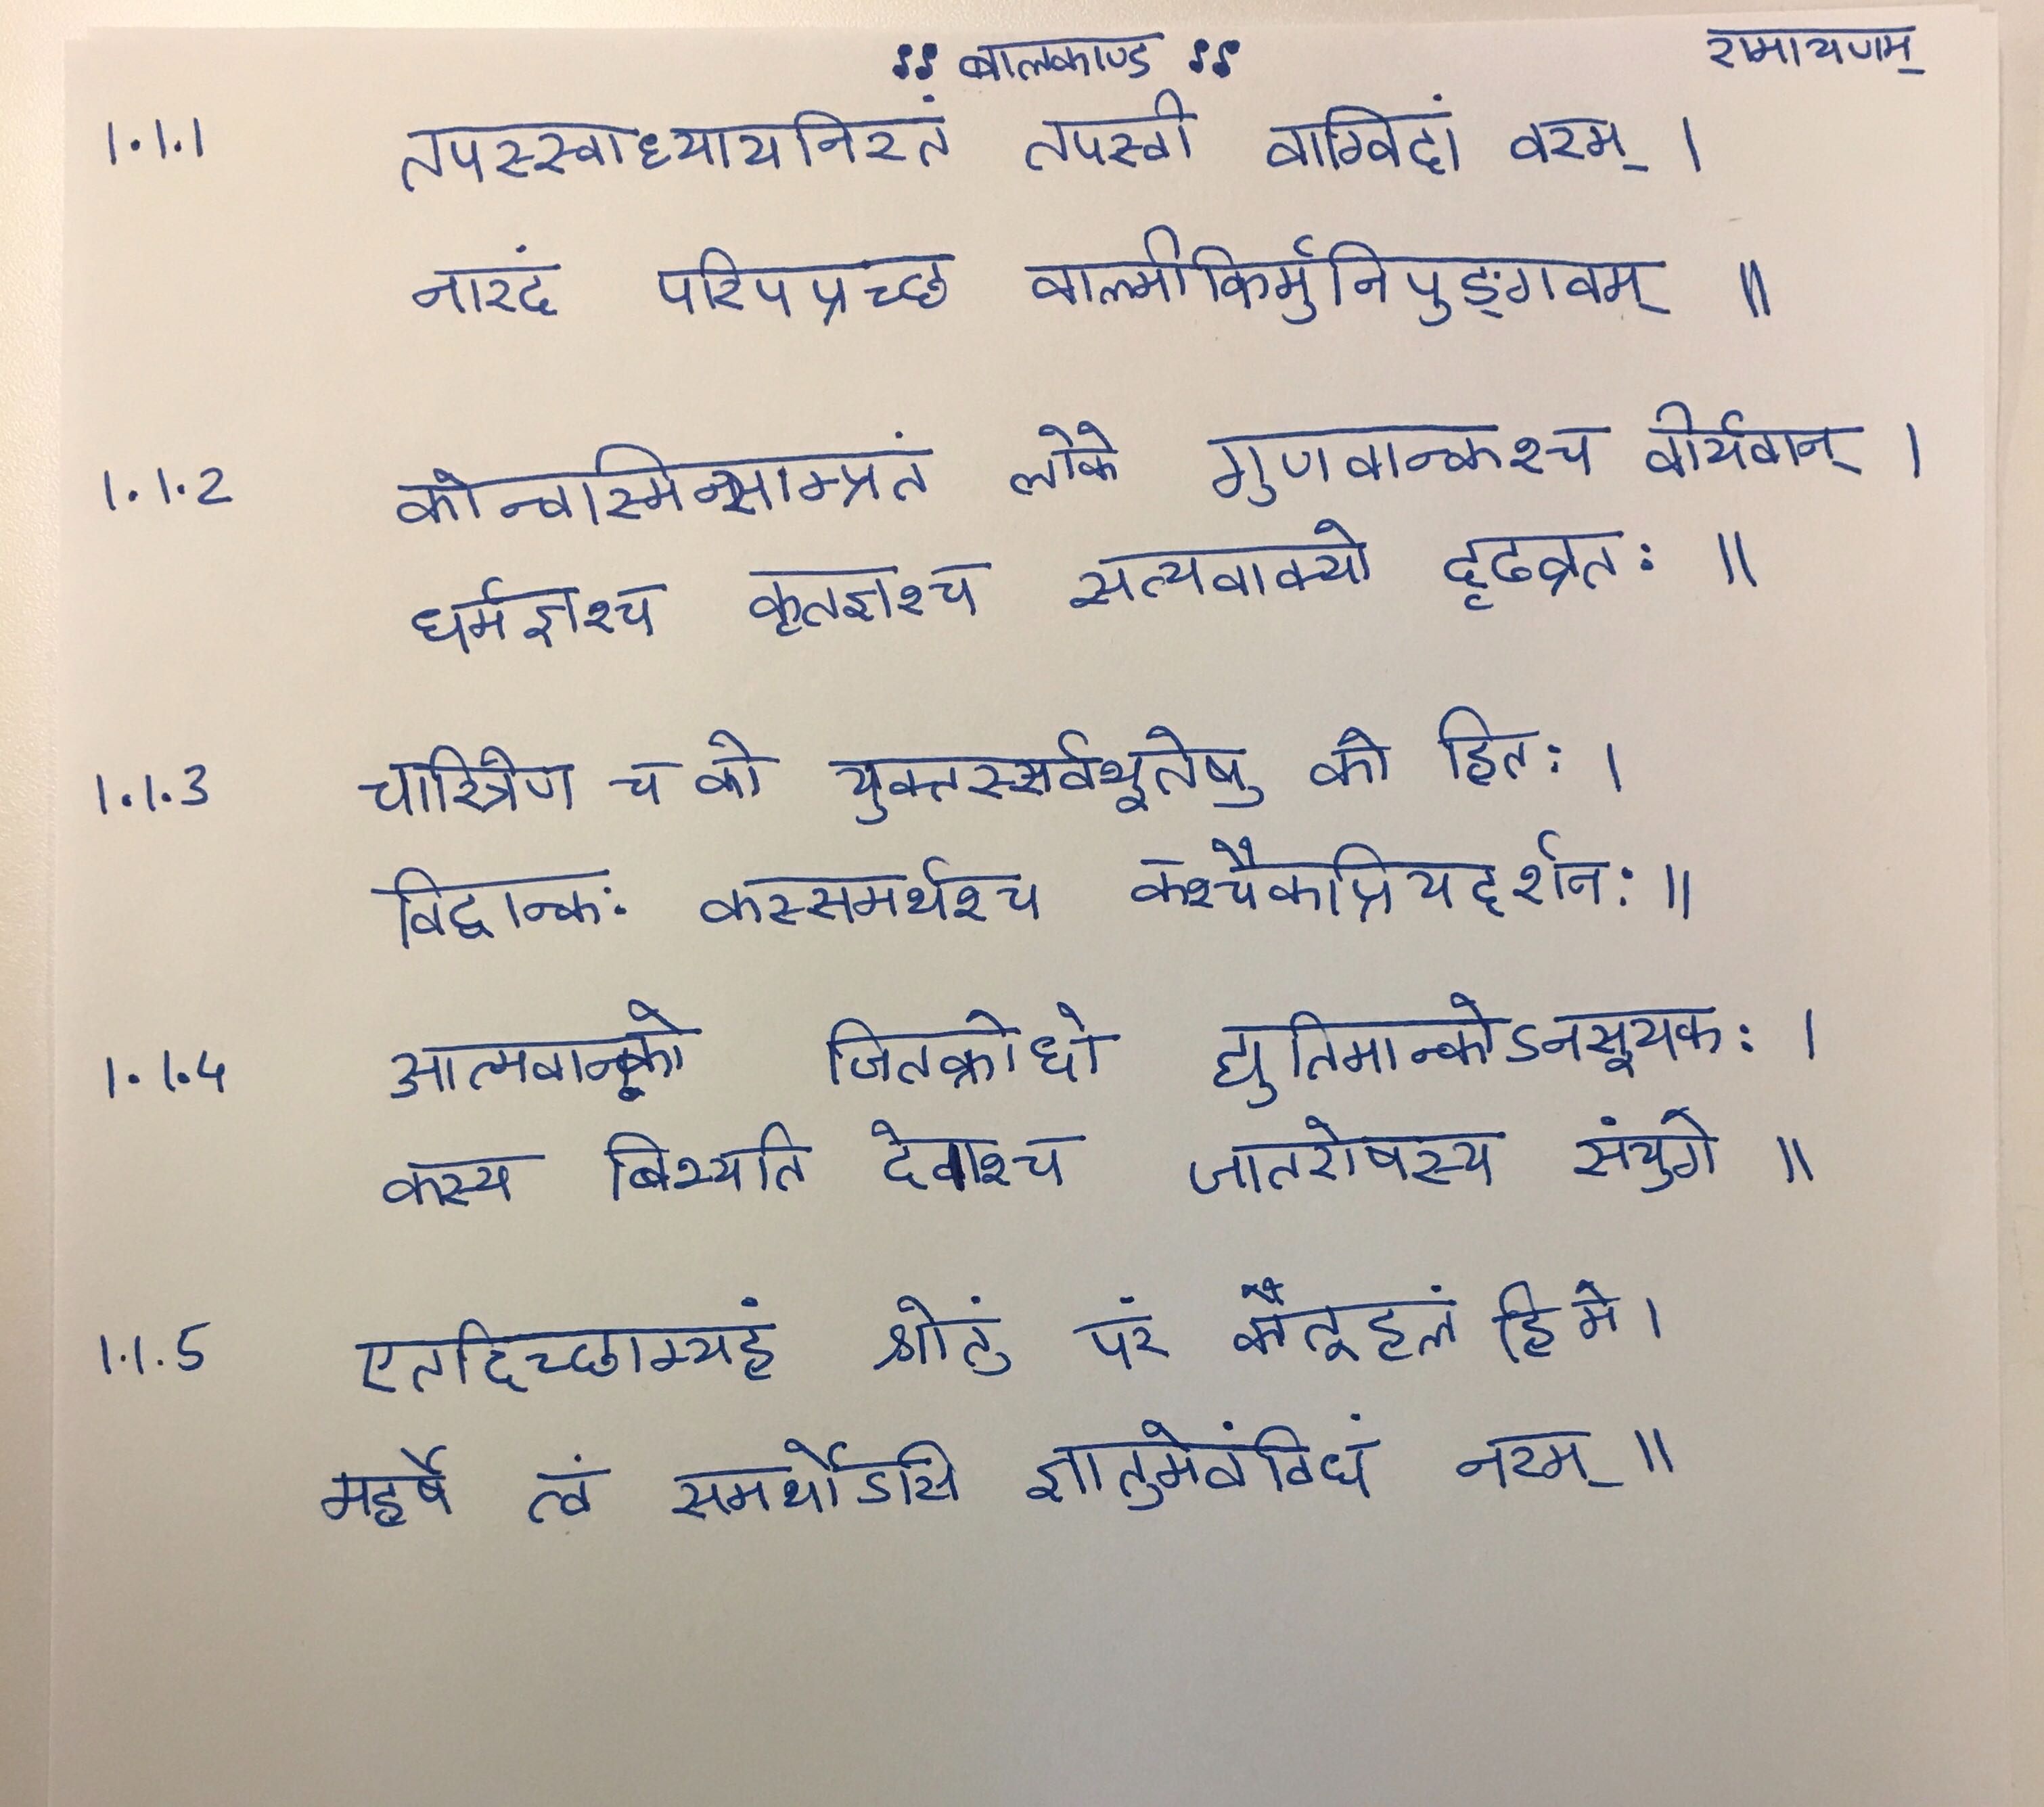 ॥ बालकाण्ड ॥ रामायणम्
1.1.1 तपस्स्वाध्यायनिरतं तपस्वी वाग्विदां वरम् ।
नारदं परिपप्रच्छ वाल्मीकिर्मुनिपुङ्गवम् ॥
1.1.2 कोन्वास्मिन्साम्प्रतं लोके गुणवान्कश्च वीर्यवान् ।
धर्मज्ञश्च कृतज्ञश्च सत्यवाक्यो दृढव्रतः ॥
1.1.3 चारित्रेण च को युक्तस्सर्वभूतेषु को हितः ।
विद्वान्कः कस्समर्थश्च कश्चैकप्रियदर्शनः ॥
1.1.4 आत्मवान्को जितक्रोधो द्युतिमान्कोऽनसूयकः ।
कस्य बिभ्यति देवाश्च जातरोषस्य संयुगे ॥
1.1.5 एतदिच्छाम्यहं श्रोतुं परं कौतूहलं हि मे ।
महर्षे त्वं समर्थोऽसि ज्ञातुमेवंविधं नरम् ॥